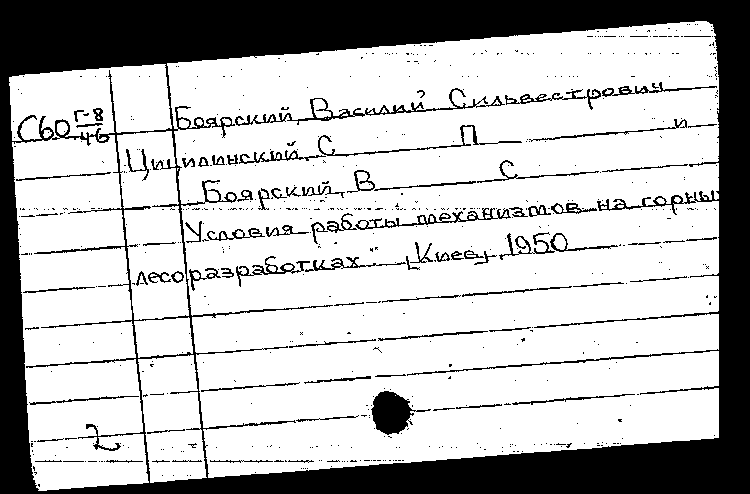 С60 Г-8/46 Боярский, Василий Сильвестрович
Цицилинский, С П и
Боярский, В С
Условия работы механизмов на горных
лесоразработках" [Киев], 1950
2